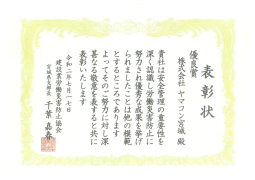 表彰状
優良賞
株式会社 ヤマコン宮城 殿
貴社は安全管理の重要性を
深く認識し労働災害防止に
努力され優秀な成果を挙げ
られましたことは他の模範
とするところであります
よってそのご努力に対し深
甚なる敬意を表すると共に
表彰いたします
令和二年七月一七日
建設業労働災害防止協会
宮城県支部長 千葉嘉春